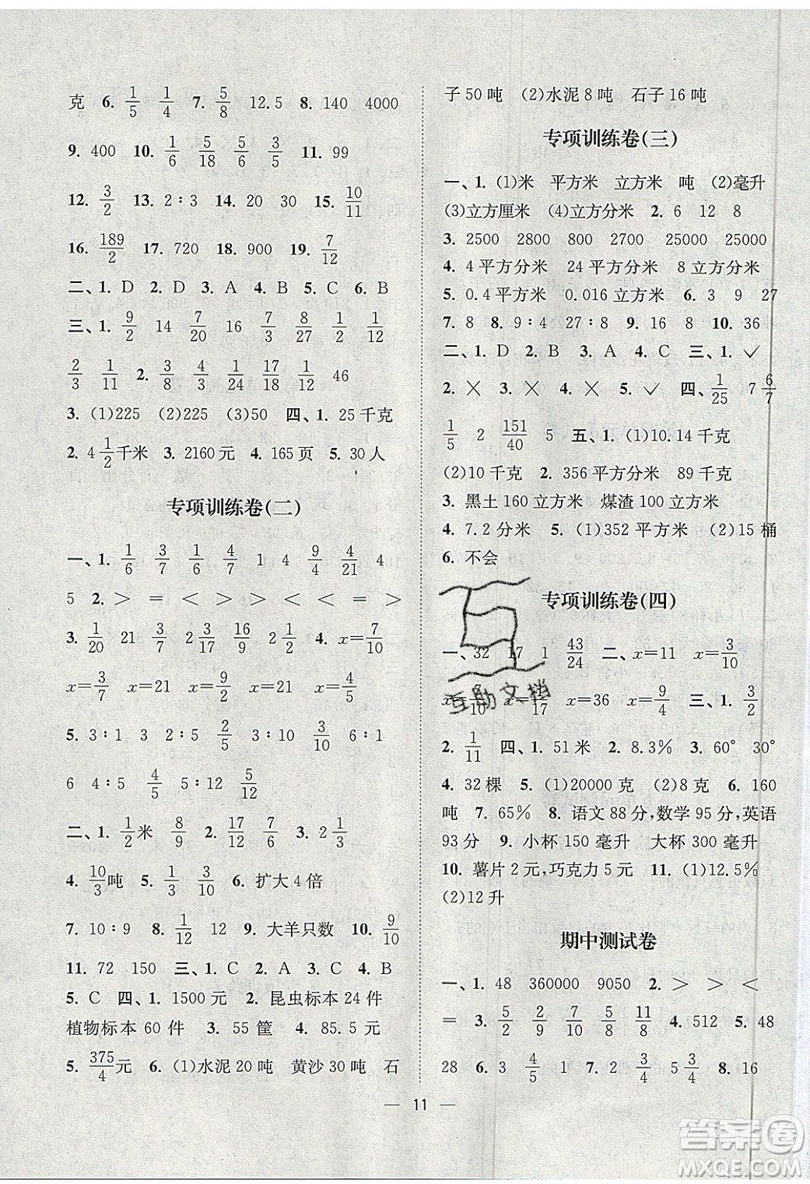 克 6. 1/5 1/4 7. 5/8 12.5 8. 140 4000
9. 400 10. 1/6 5/18 5/6 3/5 11. 99
12. 3/2 13. 2∶3 14. 20 30 15. 10/11
16. 189/2 17. 720 18. 900 19. 7/12
二、1. D 2. D 3. A 4. B 5. C 6. B
三、1. 9/2 14 7/20 16 7/3 8/27 1/2 1/12
2/3 1/11 2. 3/8 4/3 1/24 17/18 1/12 46
3. (1)225 (2)225 (3)50 四、1. 25 千克
2. 4 1/2 千米 3. 2160 元 4. 165 页 5. 30 人
专项训练卷(二)
一、1. 1/6 6/7 1/6 4/7 1 4 9/4 4/21 4
5 2. ＞ ＝ ＞ ＞ ＜ ＜ ＝ ＞
3. 1/20 21 3/7 2/9 16/9 2 1/2 4. x＝7/10
x＝3/7 x＝21 x＝9/2 x＝21 x＝3/8
5. 3∶1 3 2∶1 2 3/10 6∶1
6 4∶5 4/5 5∶9 5/9
二、1. 1/2米 2. 8/9 3. 17/12 7/6 3. 2 1/3
4. 10/3吨 5. 1/3 3/10 6. 扩大 4 倍
7. 10∶9 8. 1/12 9. 大羊只数 10. 9/10
11. 72 150 三、1. C 2. C 3. B 4. A
5. C 四、1. 1500 元 2. 昆虫标本 24 件
植物标本 60 件 3. 55 筐 4. 85.5 元
5. 375/4元 6. (1)水泥 20 吨 黄沙 30 吨 石
子 50 吨 (2)水泥 8 吨 石子 16 吨
专项训练卷(三)
一、1. (1)米 平方米 立方米 吨 (2)毫升
(3)立方厘米 (4)立方分米 2. 6 12 8
3. 2500 2800 800 2500 2500 2500
4. 4 平方分米 24 平方分米 8 立方分米
5. 0.4 平方米 0.016 立方米 6. 3 9 27
7. 8 8. 9∶4 27∶8 9. 16 10. 36
二、1. D 2. B 3. A 4. C 三、1. ✓
2. × 3. × 4. × 5. ✓ 四、1/25 7 6/7
1/5 2 151/40 5 五、1. (1)10.14 千克
(2)10 千克 2. 356 平方分米 89 千克
3. 黑土 160 立方米 煤渣 100 立方米
4. 7.2 分米 5. (1)352 平方米 (2)15 桶
6. 不会
专项训练卷(四)
一、32 17 1 43/24 二、x＝11 x＝3/10
x＝36 x＝9/4 三、1. 3/2
2. 1/11 四、1. 51 米 2. 8.3% 3. 60° 30°
4. 32 棵 5. (1)20000 克 (2)8 克 6. 160
吨 7. 65% 8. 语文 88 分，数学 95 分，英语
93 分 9. 小杯 150 毫升 大杯 300 毫升
10. 薯片 2 元，巧克力 5 元 11. (1)12.5%
(2)12 升
期中测试卷
一、1. 48 360000 9050 2. ＞ ＞ ＜
＝ 3. 5/2 2/9 7/10 5/8 11/8 4. 512 5. 48
28 6. 3 4/5 1 7. 2 3/4 3/4 8. 16
— 11 —
互助文档
答案圈
MXQE.COM